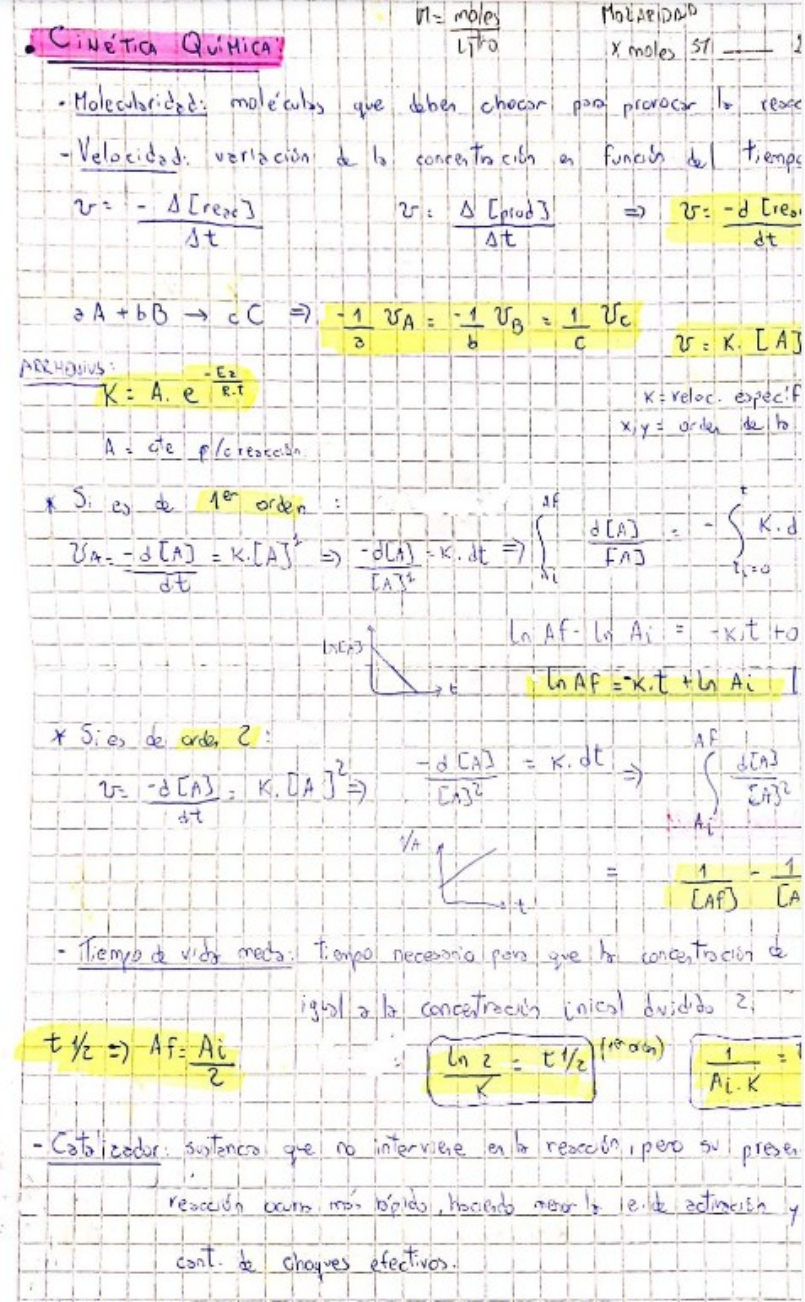 M = moles / Litro
MOLARIDAD
X moles ST ___ 1
• CINÉTICA QUÍMICA:
- Molecularidad: moléculas que deben chocar para provocar la reacc
- Velocidad: variación de la concentración en función del tiempo
v = - Δ[reac] / Δt   v = Δ[prod] / Δt ⇒ v = -d [rea / dt
aA + bB → cC ⇒ -1/a vA = -1/b vB = 1/c vC
v = K. [A]
ARRHENIUS:
K = A. e^(-Ea/R.T)
K = veloc. específ
x, y = orden de la
A = cte p/c reacción
* Si es de 1er orden :
vA = -d[A]/dt = K.[A]^1 ⇒ -d[A]/[A]^1 = K. dt ⇒ ∫ Ai Af d[A]/[A] = - ∫ ti=0 t K. d
ln[A] t
ln Af - ln Ai = -K.t + 0
ln Af = -K.t + ln Ai
* Si es de orden 2 :
v = -d[A]/dt = K. [A]^2 ⇒ -d[A]/[A]^2 = K. dt ⇒ ∫ Ai Af d[A]/[A]^2
1/A t
= 1/[Af] - 1/[A
- Tiempo de vida media: tiempo necesario para que la concentración de
igual a la concentración inical dividido 2.
t 1/2 ⇒ Af = Ai/2   ln 2 / K = t 1/2 (1er orden)   1 / Ai . K =
- Catalizador: sustancia que no interviene en la reacción, pero su presen
reacción ocurra más rápido, haciendo menor la e. de activación y
cant. de choques efectivos.